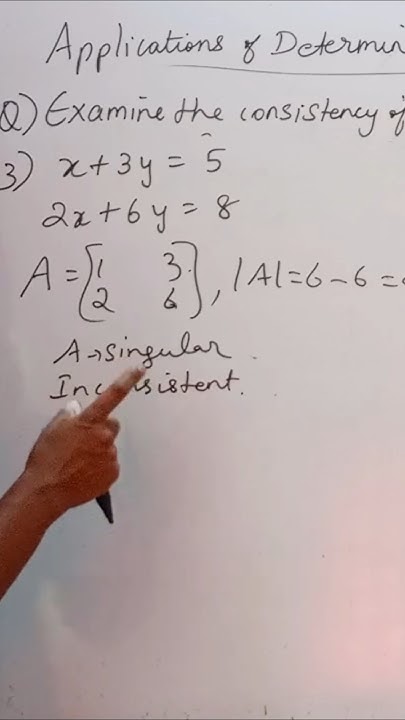 Applications of Determin
Q) Examine the consistency of
3) x + 3y = 5
2x + 6y = 8
A = [1 3
2 6], |A| = 6 - 6 =
A → singular
Inconsistent.